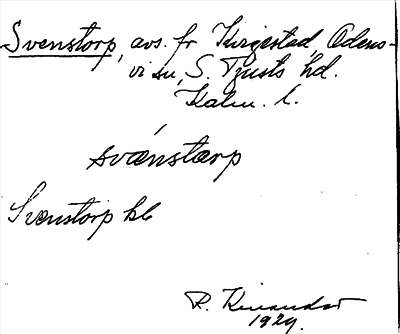 Svenstorp, avs. fr Kirgestad, Odens-
vi sn, S. Tjusts hd.
Kalm. l.
svänstærp
Svenstorp hl
R. Kinander
1929.